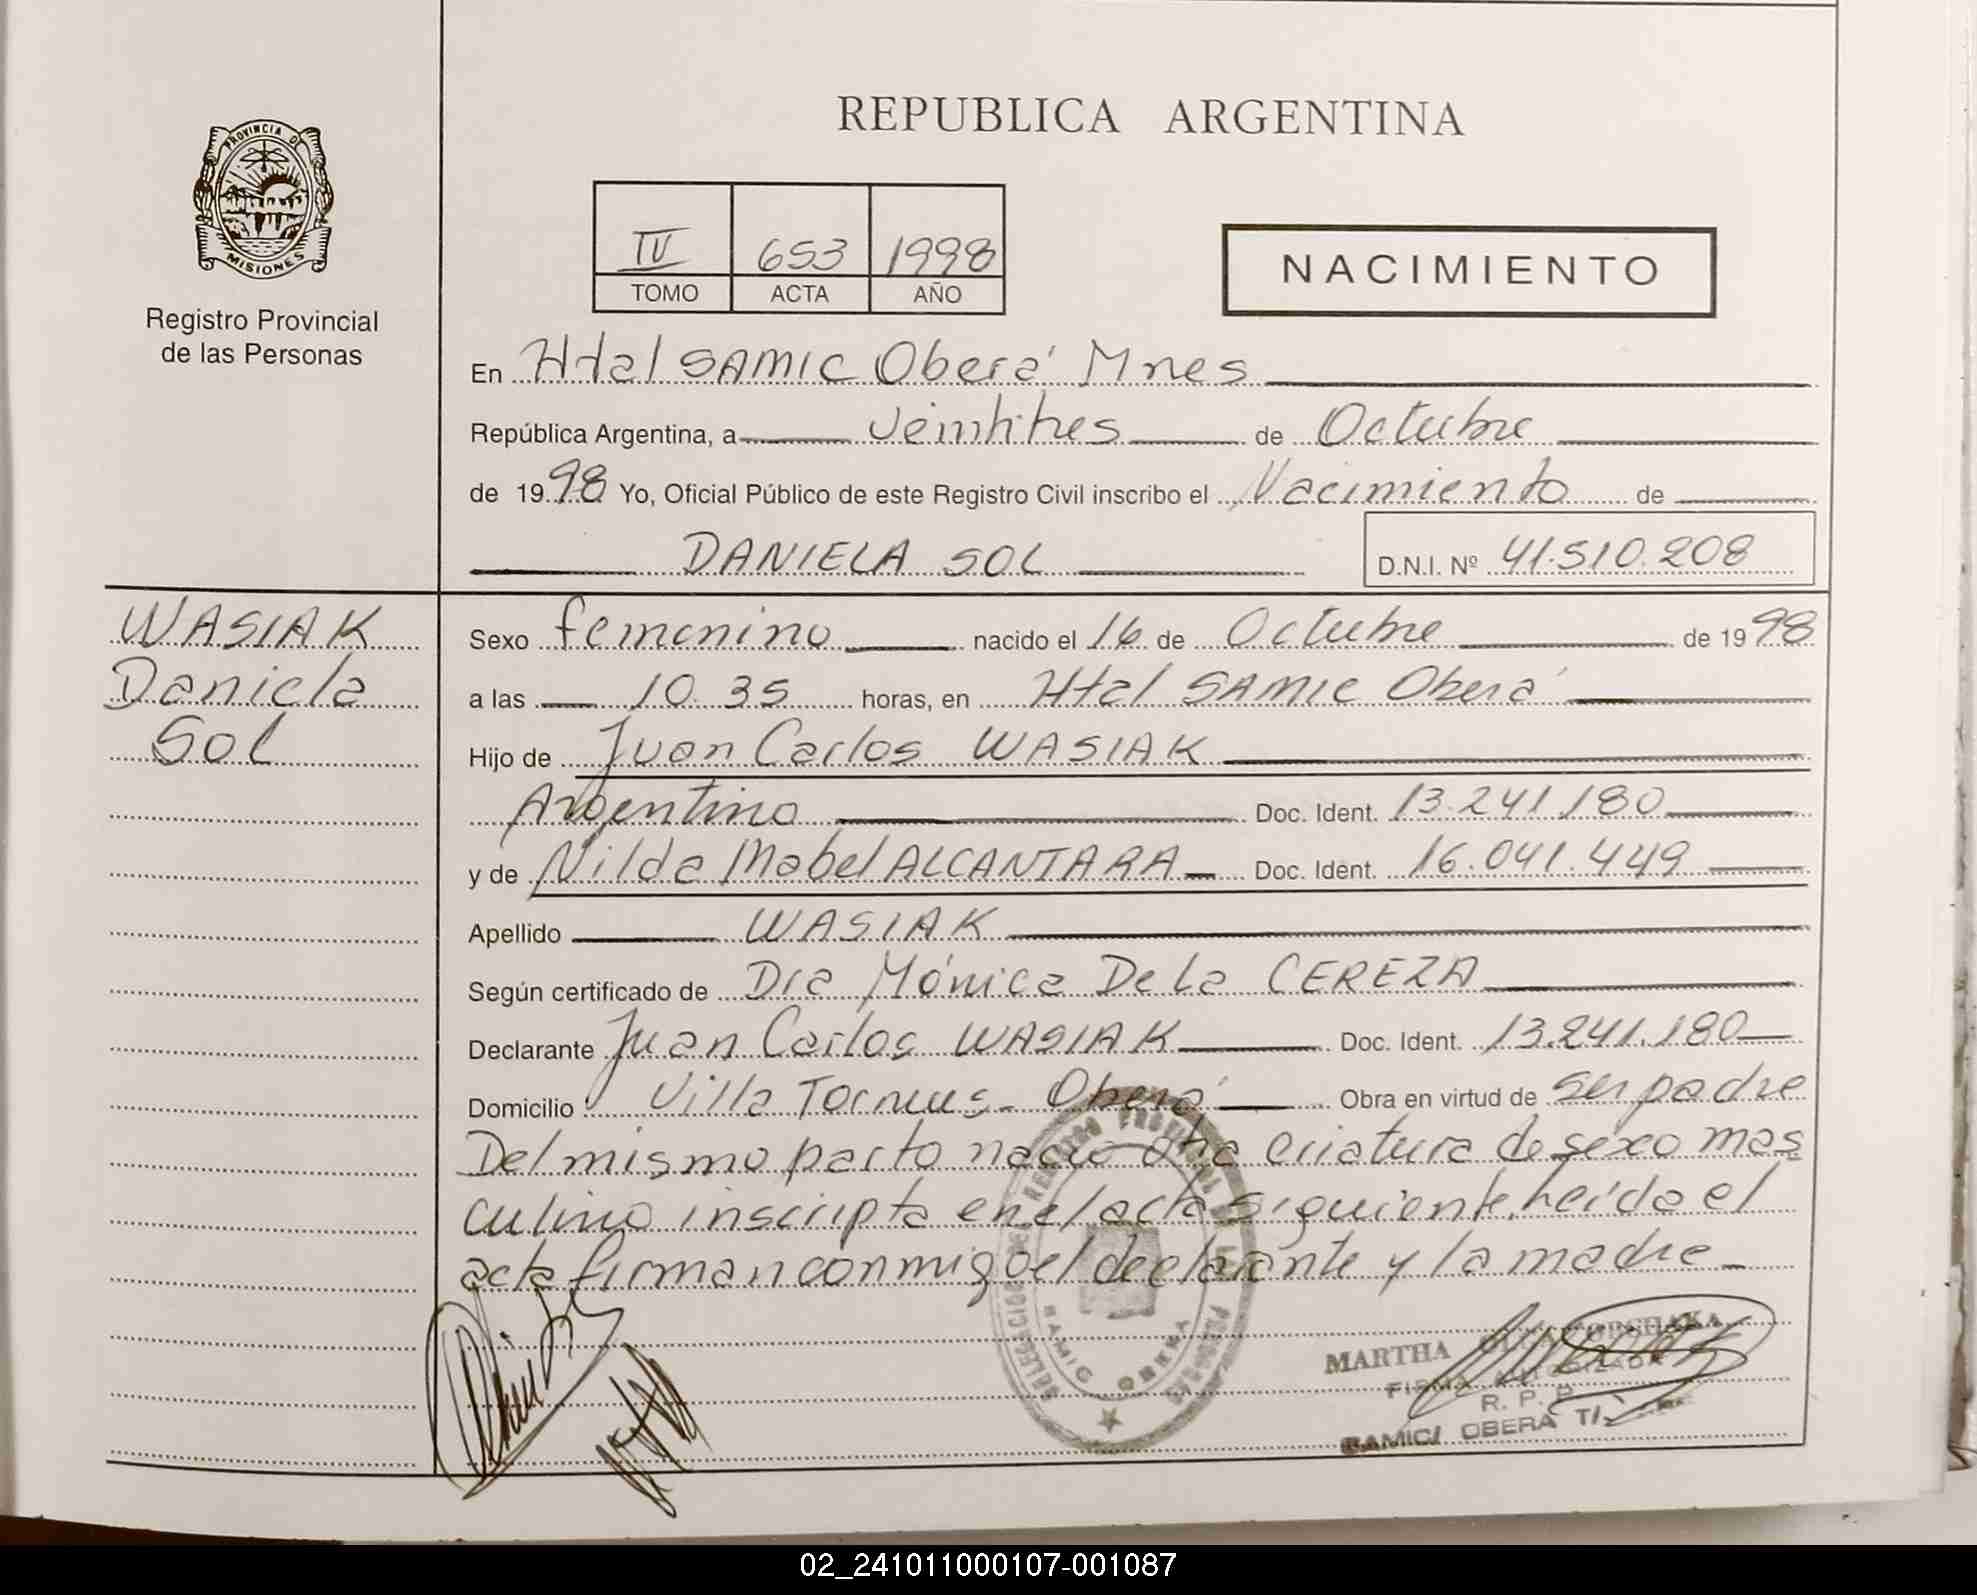 REPUBLICA ARGENTINA
PROVINCIA DE
MISIONES
Registro Provincial
de las Personas
IV 653 1998
TOMO ACTA AÑO
NACIMIENTO
En Htal SAMIC Oberá Mnes
República Argentina, a veintitres de Octubre
de 1998 Yo, Oficial Público de este Registro Civil inscribo el Nacimiento de
DANIELA SOL D.N.I. Nº 41.510.208
WASIAK
Daniela
Sol
Sexo femenino nacido el 16 de Octubre de 1998
a las 10.35 horas, en Htal SAMIC Oberá
Hijo de Juan Carlos WASIAK
Argentino Doc. Ident. 13.241.180
y de Nilda Mabel ALCANTARA Doc. Ident. 16.041.449
Apellido WASIAK
Según certificado de Dra Mónica De La CEREZA
Declarante Juan Carlos WASIAK Doc. Ident. 13.241.180
Domicilio Villa Oberá Obra en virtud de ser padre
Del mismo parto nació otra criatura de sexo mas
culino inscripta en el acta siguiente. Leída el
acta firman conmigo el declarante y la madre
REGISTRO PROVINCIAL DE LAS PERSONAS
SAMIC OBERA
MARTHA
FIRMA AUTORIZADA
R. P. P.
SAMIC/ OBERA
02_241011000107-001087